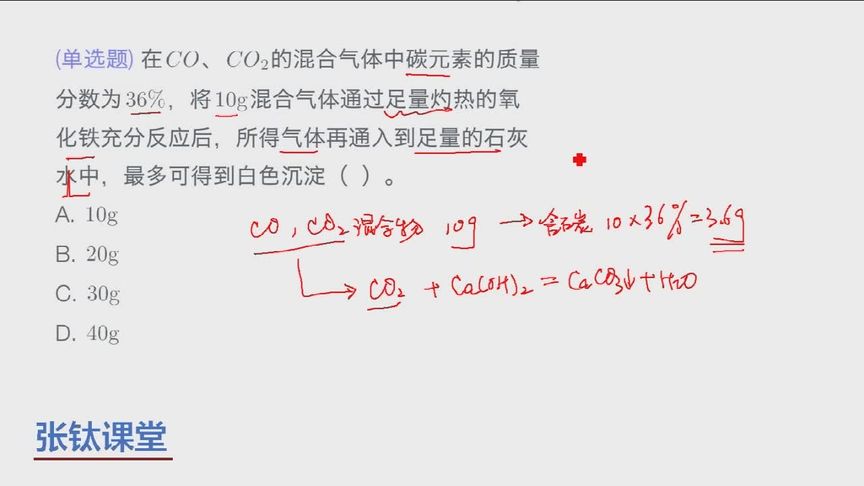 (单选题) 在CO、CO₂的混合气体中碳元素的质量
分数为36%，将10g混合气体通过足量灼热的氧
化铁充分反应后，所得气体再通入到足量的石灰
水中，最多可得到白色沉淀（ ）。
A. 10g
B. 20g
C. 30g
D. 40g
CO，CO₂混合物 10g → 含碳 10×36%=3.6g
CO₂ + Ca(OH)₂ = CaCO₃↓+H₂O
张钛课堂